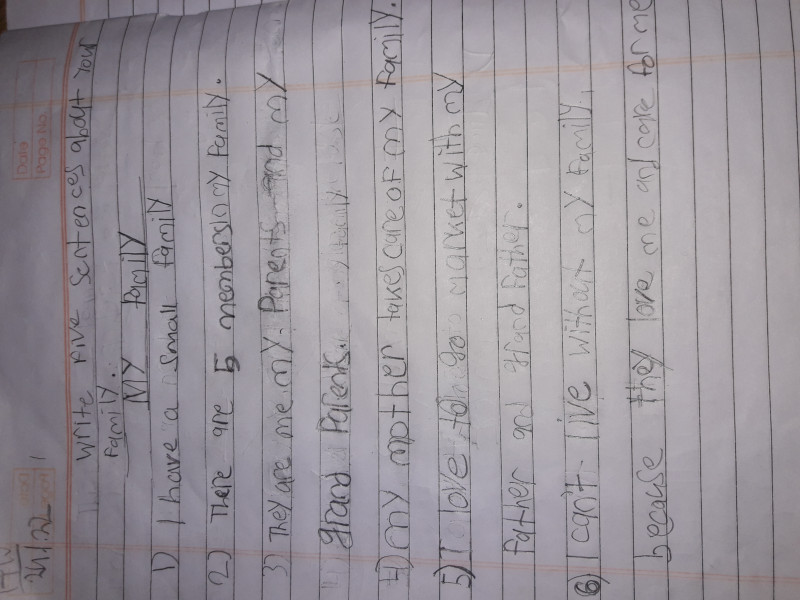 Date
Page No.
24.1.22
Write Five Sentences about Your
Family.
MY Family
1) I have a Small family
2) There are 5 members in my Family.
3) They are me my Parents and my
grand Parents.
4) my mother takes care of my Family.
5) I love to go market with my
Father and grand Father.
6) I can't live without my Family.
because they love me and care for me